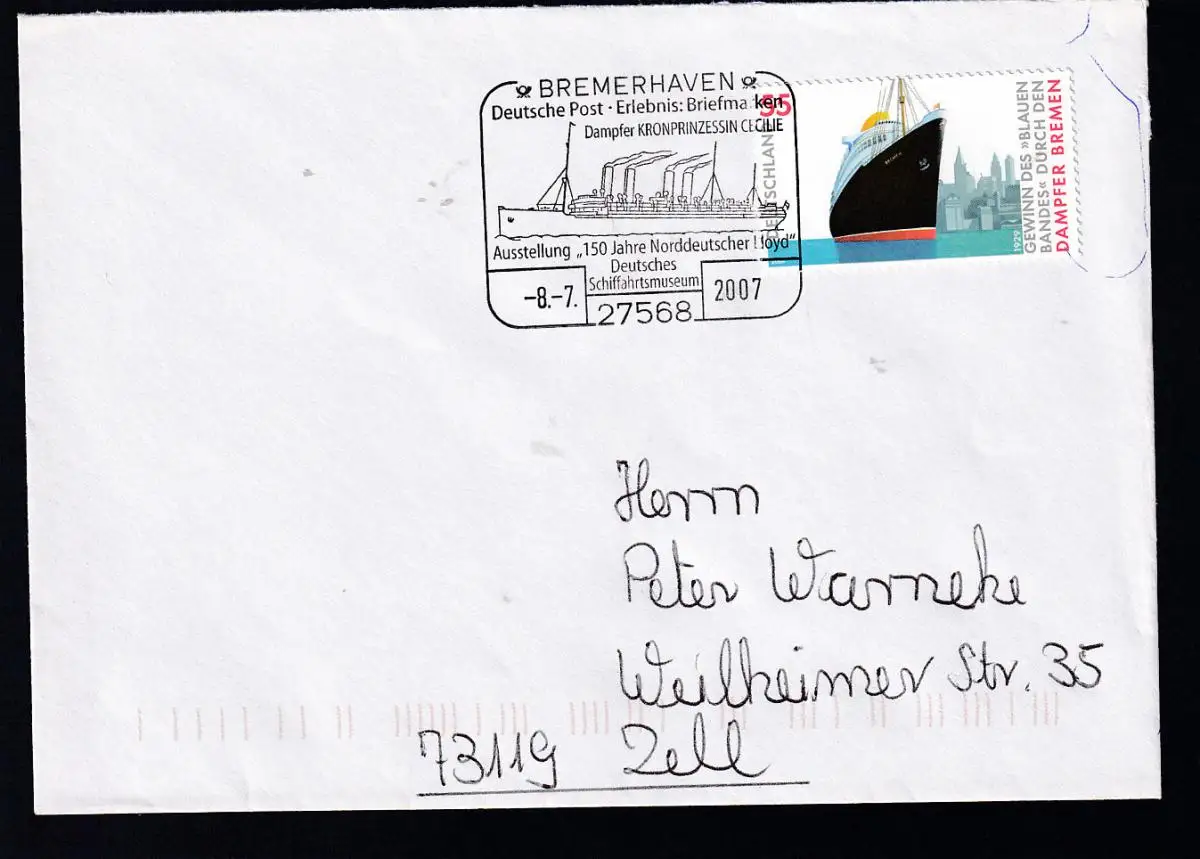 BREMERHAVEN
Deutsche Post · Erlebnis: Briefmarken
Dampfer KRONPRINZESSIN CECILIE
Ausstellung „150 Jahre Norddeutscher Lloyd"
Deutsches
Schiffahrtsmuseum
-8.-7. 2007
27568
55
DEUTSCHLAND
1929
GEWINN DES »BLAUEN
BANDES« DURCH DEN
DAMPFER BREMEN
Herrn
Peter Warneke
Weilheimer Str. 35
73119 Zell